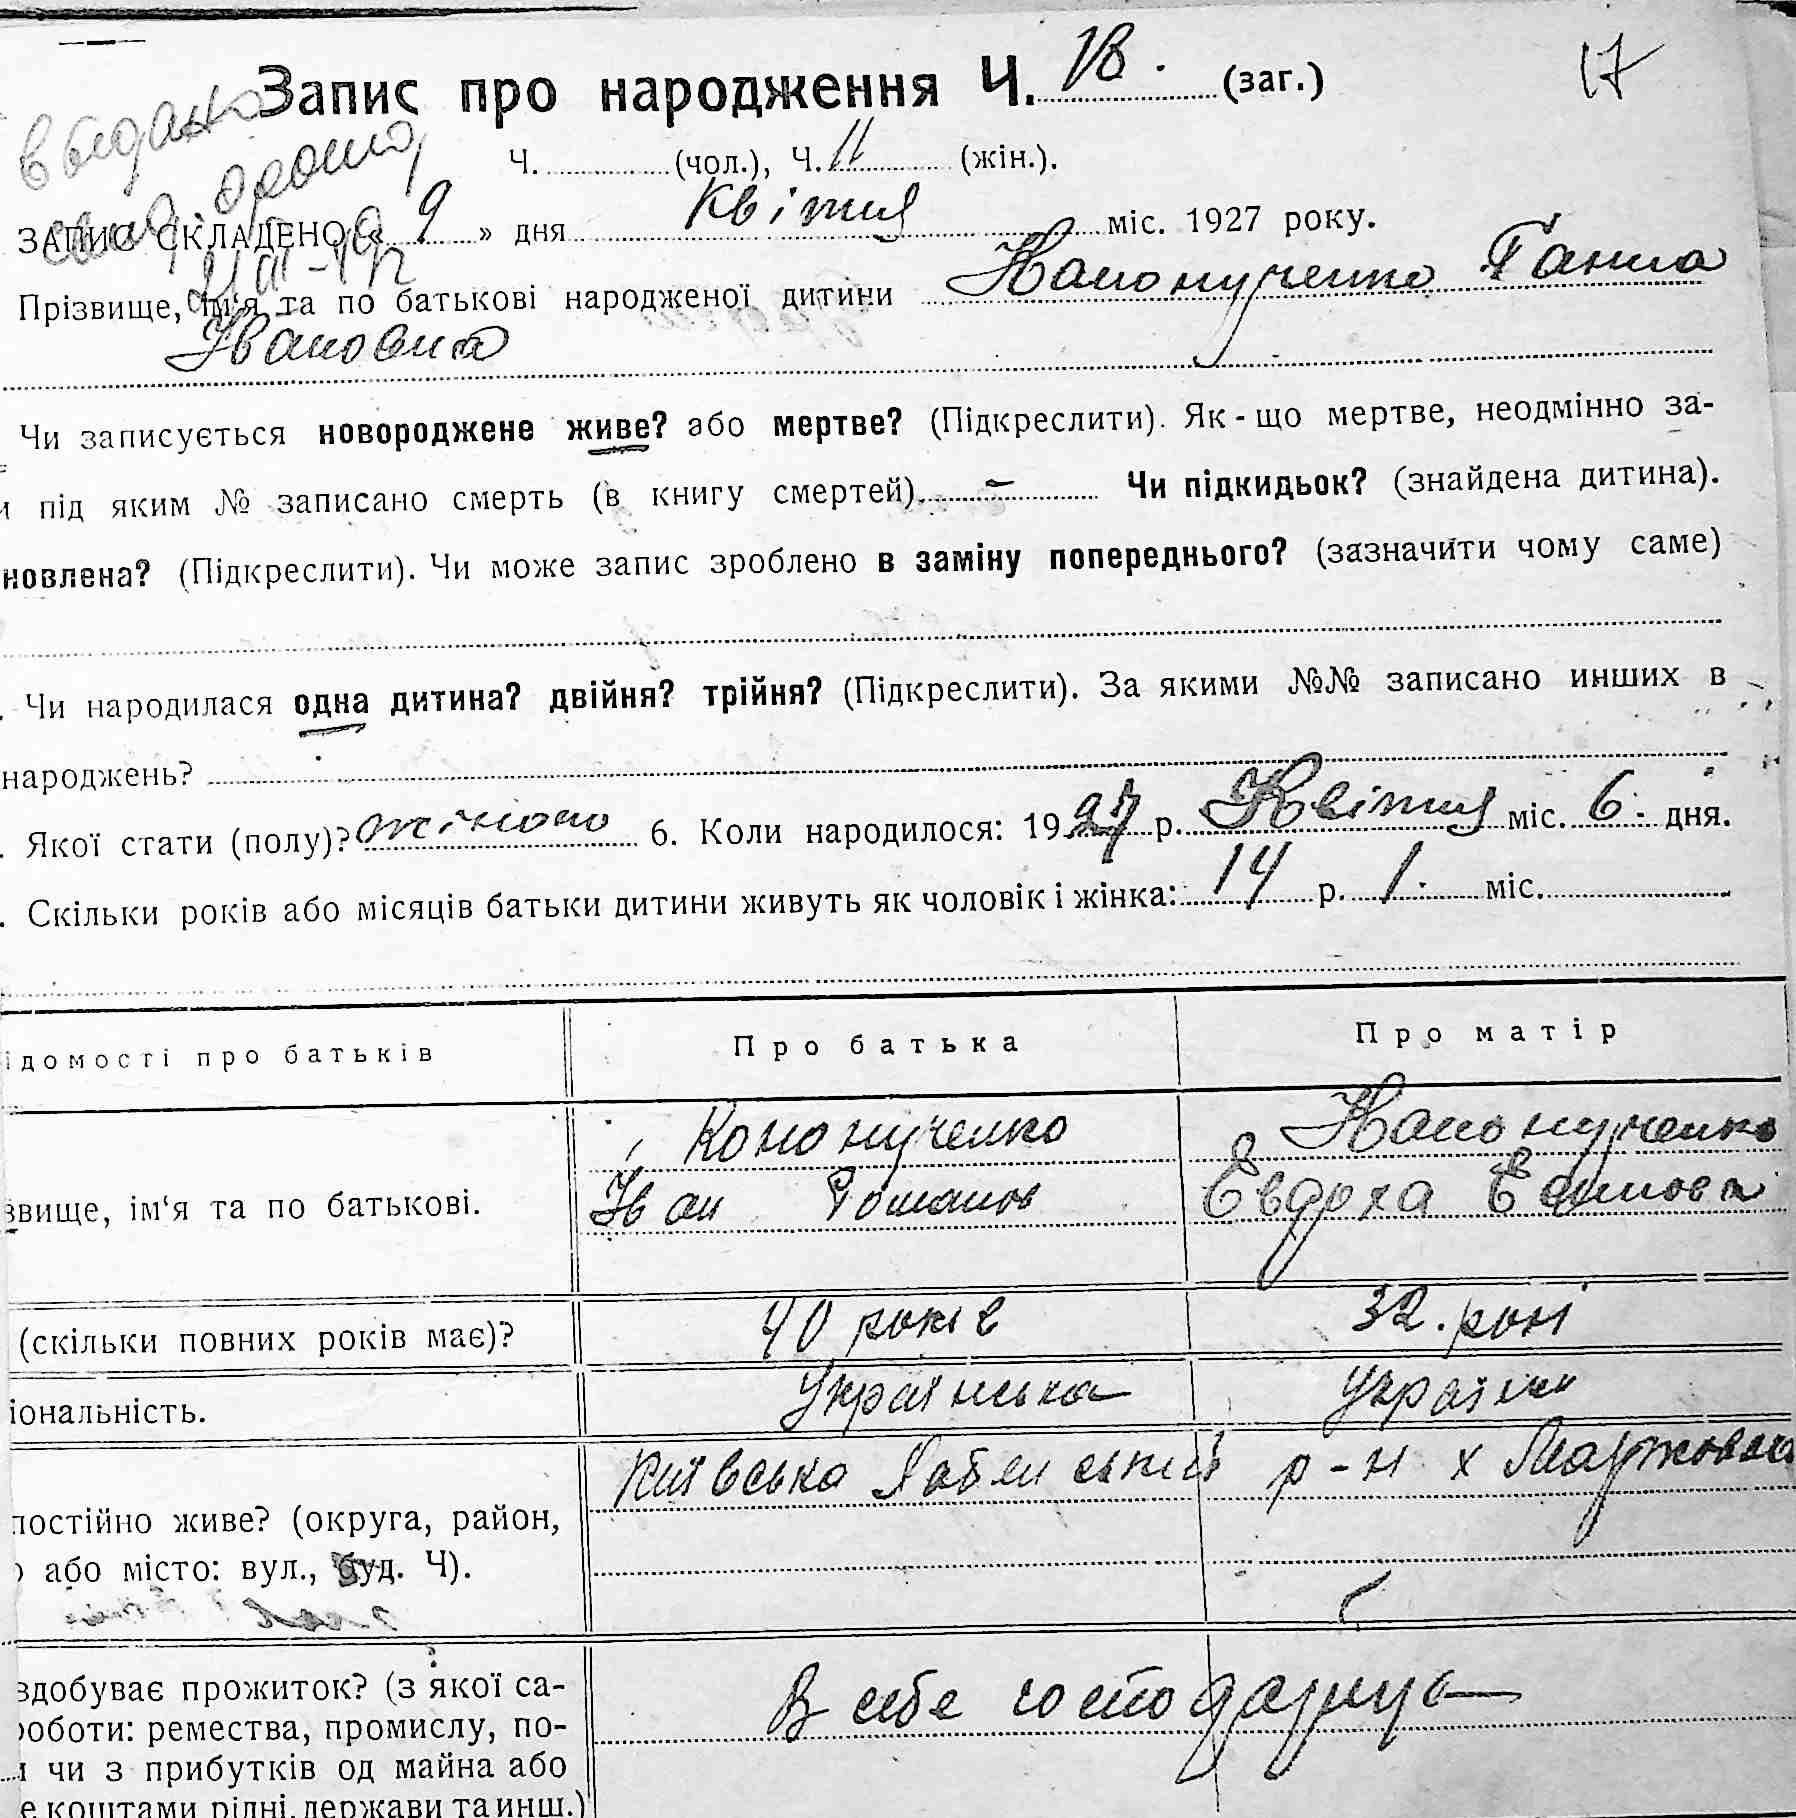 17
Запис про народження Ч. 18. (заг.)
Ч. (чол.), Ч. 11 (жін.).
ЗАПИС СКЛАДЕНО « 9 » дня Квітня міс. 1927 року.
Прізвище, ім‘я та по батькові народженої дитини Кононученко Ганна
Івановна
Чи записується новороджене живе? або мертве? (Підкреслити). Як-що мертве, неодмінно за-
и під яким № записано смерть (в книгу смертей) — Чи підкидьок? (знайдена дитина).
новлена? (Підкреслити). Чи може запис зроблено в заміну попереднього? (зазначити чому саме)
. Чи народилася одна дитина? двійня? трійня? (Підкреслити). За якими №№ записано инших в
народжень?
. Якої стати (полу)? жіночо 6. Коли народилося: 1927 р. Квітня міс. 6 дня.
. Скільки років або місяців батьки дитини живуть як чоловік і жінка: 14 р. 1 міс.
ідомості про батьків Про батька Про матір
Кононученко Кононученко
звище, ім‘я та по батькові. Іван Романов Евдоха
(скільки повних років має)? 40 років 32. рокі
іональність. Українська Українк
Київсько р-н х
постійно живе? (округа, район,
о або місто: вул., буд. Ч).
здобуває прожиток? (з якої са- В себе господарує
роботи: ремества, промислу, по-
и чи з прибутків од майна або
е коштами рідні, держави та инш.)